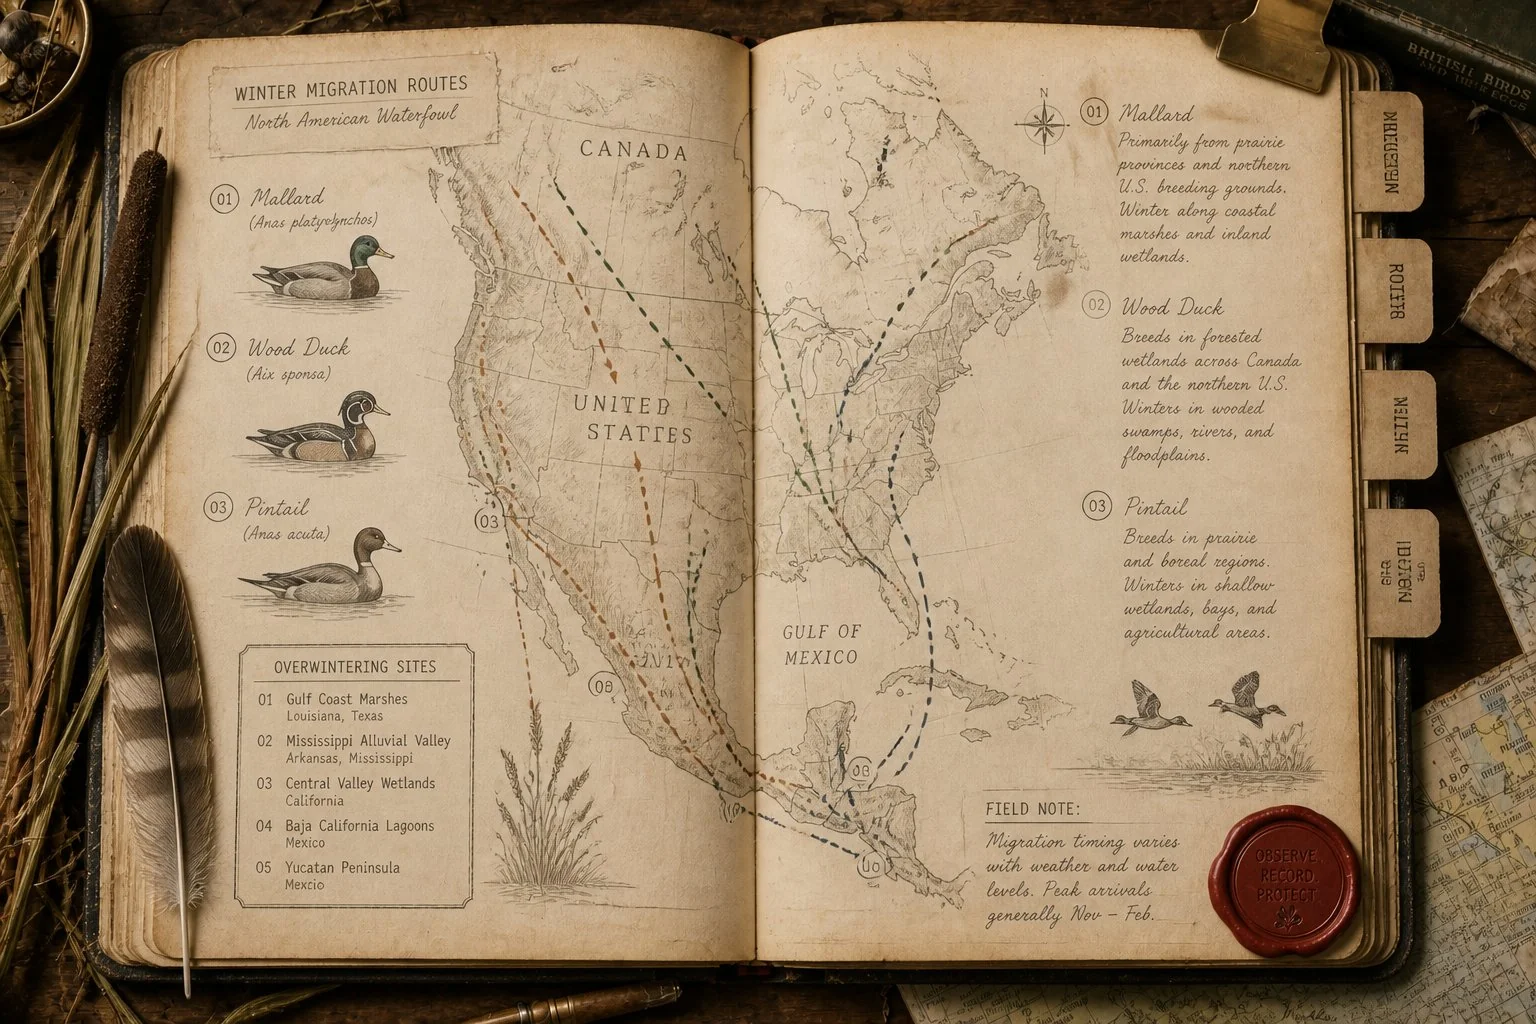 WINTER MIGRATION ROUTES
North American Waterfowl
01 Mallard
(Anas platyrhynchos)
02 Wood Duck
(Aix sponsa)
03 Pintail
(Anas acuta)
OVERWINTERING SITES
01 Gulf Coast Marshes
Louisiana, Texas
02 Mississippi Alluvial Valley
Arkansas, Mississippi
03 Central Valley Wetlands
California
04 Baja California Lagoons
Mexico
05 Yucatan Peninsula
Mexcio
CANADA
UNITED
STATTES
03
08
GULF OF
MEXICO
08
N
01 Mallard
Primarily from prairie
provinces and northern
U.S. breeding grounds.
Winter along coastal
marshes and inland
wetlands.
02 Wood Duck
Breeds in forested
wetlands across Canada
and the northern U.S.
Winters in wooded
swamps, rivers, and
floodplains.
03 Pintail
Breeds in prairie
and boreal regions.
Winters in shallow
wetlands, bays, and
agricultural areas.
FIELD NOTE:
Migration timing varies
with weather and water
levels. Peak arrivals
generally Nov – Feb.
OBSERVE.
RECORD.
PROTECT.
BRITISH BIRDS
AND THEIR EGGS